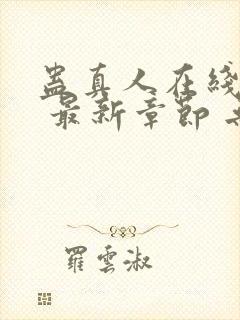 蛊真人在线
最新章節
羅雲淑